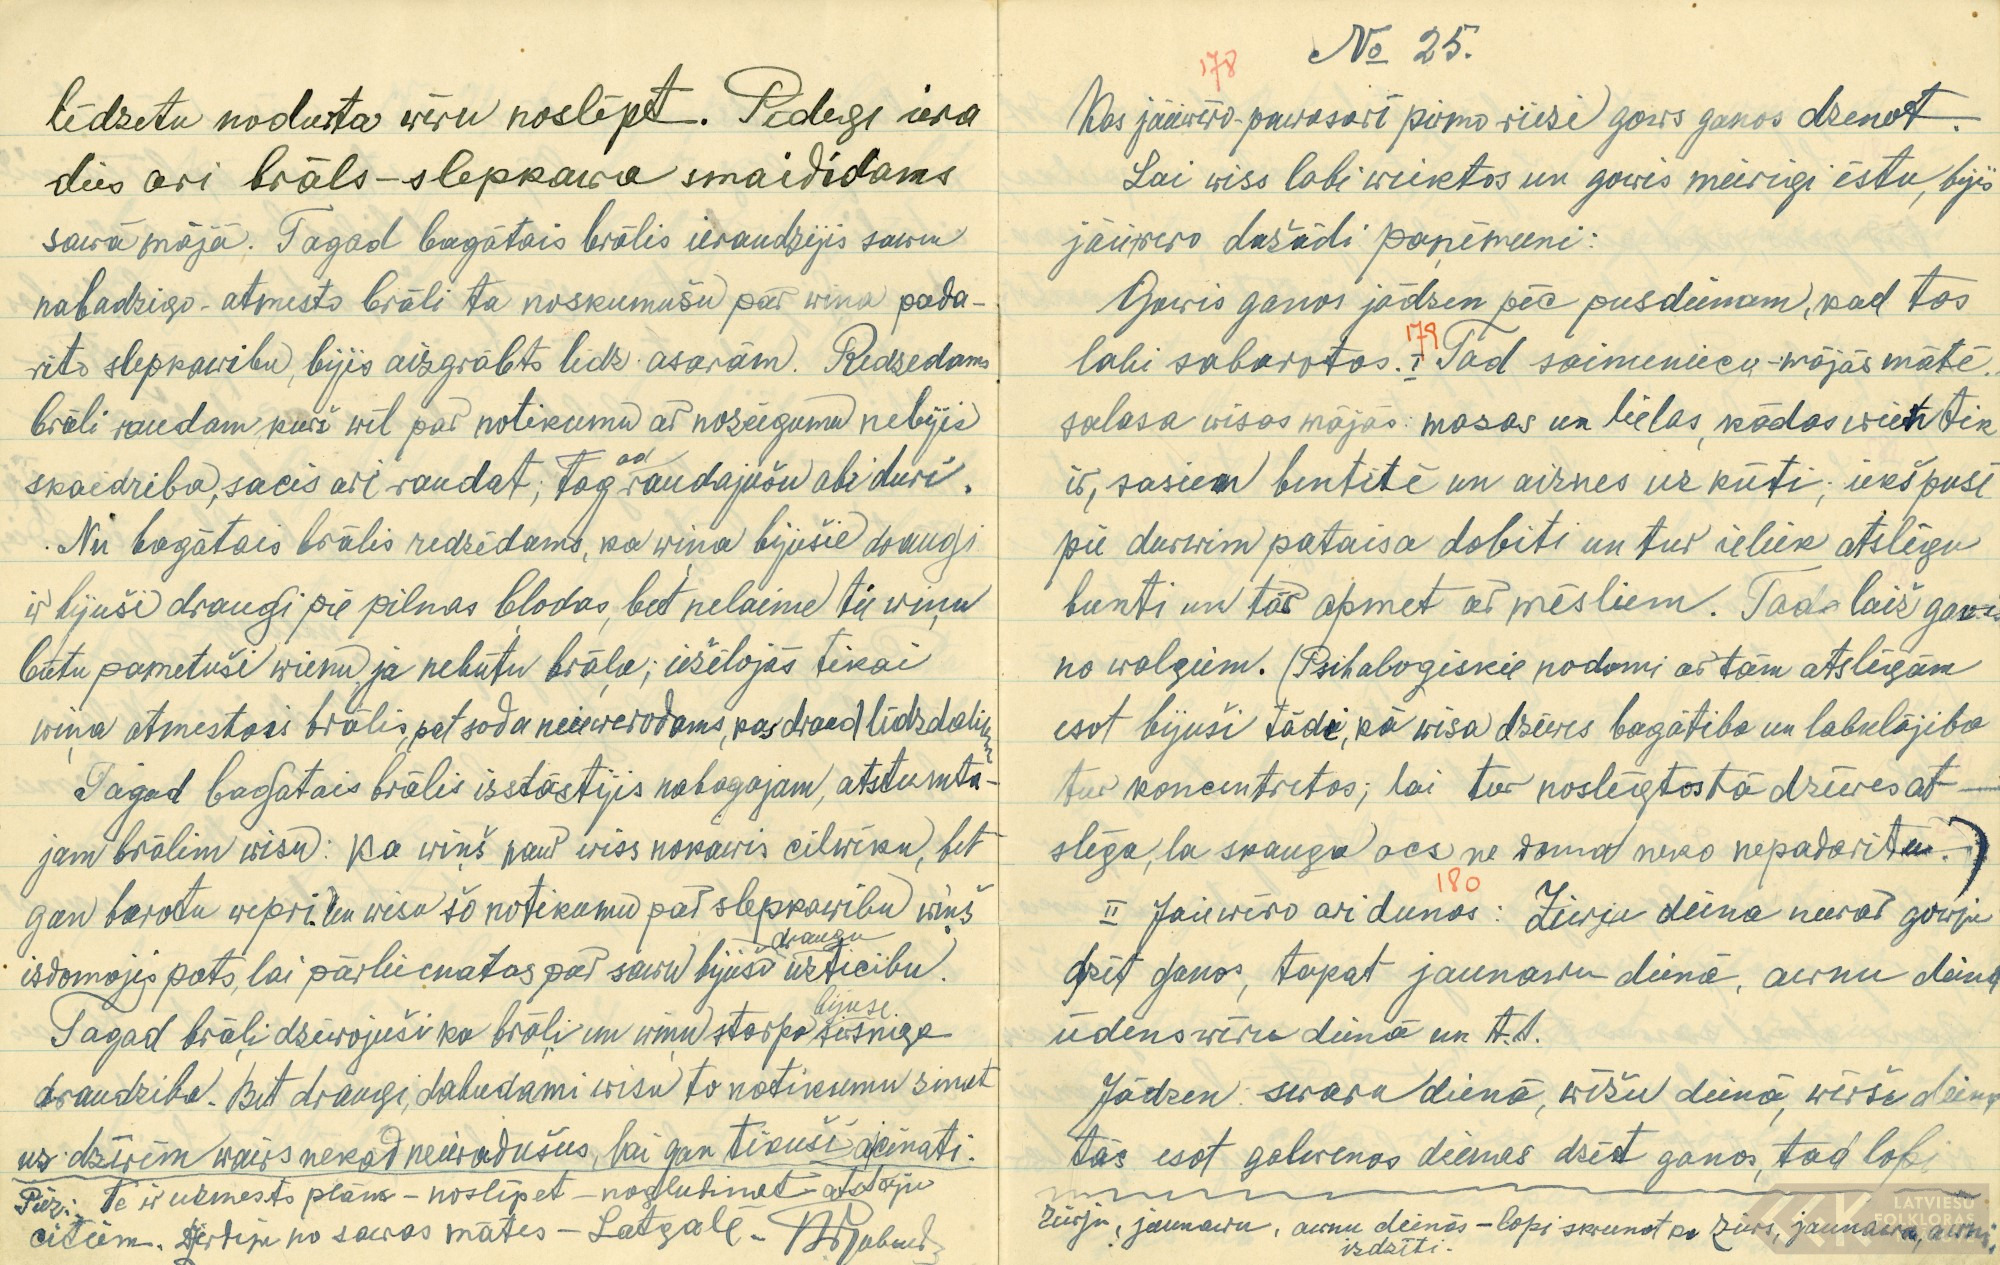 lēdzetu nodurta wēru noslēpt. Pēdegi iera
dies ari brāls-slepkawa smaididams
sawā mājā. Tagad bagātais brālis ieraudzijis sawu
nabadzigo-atmesto brāli ta noskumušu par wiņa pada-
rito slepkawibu, bijis aizgrābts lidz asarām. Redzedams
brāli raudam kurš wēl par notikumu ar noziegumu nebijis
skaidriba, sacis ari raudat; tagad raudajušu abi duri.
Nu bagātais brālis redzēdams, ka wiņa bijušie draugi
ir bijuši draugi pie pilnas bļodas, bet nelaime tie wiņu
būtu pametuši wienu, ja nebūtu brāļa; iežēlojās tikai
wiņa atmestais brālis, pat soda neiewerodams, kas draud lidzdaliem
Tagad bagatais brālis izstāstijis nabagajam, atstumta-
jam brālim wisu: ka wiņš naw wiss nokawis cilwēku, bet
gan barotu wepri. Un wisu šo notikumu par slepkawibu wiņš
izdomajis pats, lai pārliecinatos par sawu bijuši draugu uzticibu.
Tagad brāļi dzīwojuši ka brāļi un wiņu starpa bijuse sirsniga
draudziba. Bet draugi, dabudami wisu to notikumu zinat
uz dzīrēm wairs nekad neieradušies, lai gan tikuši aicinati.
Piez: Te ir uzmests plāns - noslīpet - nogludinat atstāju
citiem. Dzirdēju no sawas mātes - Latgalē -
No 25.
178
Kas jāiewēro pawasarī pirmo reizi gows ganos dzenot.
Lai wiss labi weiktos un gowis mierigi ēstu, bijis
jāiewero dažādi paņēmieni:
Gowis ganos jādzen pēc pusdienam, kad tas
179
labi sabarotas. I Tad saimeniece-mājās māte
salasa wisas mājas: mazas un lielas, kādas wien tik
ir, sasien buntitē un aiznes uz kūti; iekšpusē
pie durwim pataisa dobiti un tur ieliek atslēgu
bunti un tās apmet ar mēsliem. Tad laiž gowis
no walgiem. (Psihalogiskie nodomi ar tām atslēgām
esot bijuši tādi, kā wisa dzīwes bagātiba un labklājiba
tur koncentretos; lai tur noslēgtos tā dzīwes at-
slēga, la skauga acs ne doma neko nepadaritu.)
180
II Jāiewēro ari dienas: Ziwju diena newar gowju
dzīt ganos, tapat jaunawu dienā, awnu dienā
ūdenswīru dienā un t.t.
Jādzen swaru dienā, wēžu dienā, wērša dienā
tās esot galwenas dienas dzīt ganos, tad lopi
Ziwju, jaunawu, awnu dienās - lopi skrienot ka ziws, jaunawa, awni.
izdzīti.
LATVIEŠU
FOLKLORAS